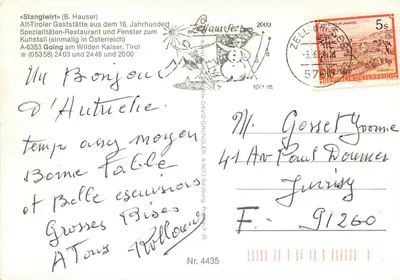 «Stanglwirt» (B. Hauser)
Alt-Tiroler Gaststätte aus dem 16. Jahrhundert
Spezialitäten-Restaurant und Fenster zum
Kuhstall (einmalig in Österreich)
A-6353 Going am Wilden Kaiser, Tirol
(05358) 2403 und 2446 und 2000
Un Bonjour
D'Autriche
temps assez moyen
Bonne Table
et Belle excursions
Grosses Bises
A Tous
Zell am See
2000
ZELL AM SEE
5700
5S
REPUBLIK ÖSTERREICH
M. Gosset Yvonne
41 Av Paul Doumer
Juvisy
F. 91260
Nr. 4435